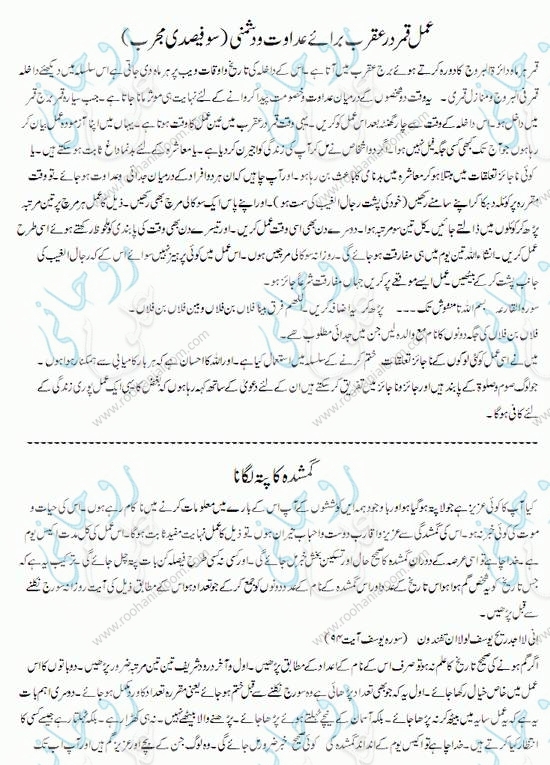 عمل قمر در عقرب برائے عداوت و دشمنی (سو فیصدی مجرب)
قمر ہر ماہ دائرۃ البروج کا دورہ کرتے ہوئے برج عقرب میں آتا ہے۔ اس کے داخلہ کی تاریخ و اوقات ویب پر ہر ماہ دی جاتی ہے اس سلسلہ میں دیکھئے داخلہ
قمر فی البروج و منازل قمری۔ یہ وقت دو شخصوں کے درمیان عداوت و خصومت پیدا کروانے کے لئے نہایت ہی موثر مانا جاتا ہے۔ جب سیارہ قمر برج قمر
میں داخل ہو۔ اس داخلہ کے وقت سے چار گھنٹہ بعد اس عمل کو کریں۔ یہی وقت قمر در عقرب میں عین عمل کا وقت ہوتا ہے۔ یہاں میں اپنا آزمودہ عمل بیان کر
رہا ہوں جو آج تک کبھی کسی جگہ فیل نہیں ہوا۔ اگر دو اشخاص نے مل کر آپ کی زندگی کو اجیرن کر دیا ہے۔ یا معاشرہ کے لئے بدنما داغ ثابت ہو سکتے ہیں۔ یا
کوئی ناجائز تعلقات میں مبتلا ہو کر معاشرہ میں بدنامی کا باعث بن رہا ہو۔ اور آپ چاہیں کہ ان ہر دو افراد کے درمیان جدائی و عداوت ہو جائے۔ تو وقت
مقررہ پر کوئلہ دہکا کر اپنے سامنے رکھیں (خود کی پشت رجال الغیب کی سمت ہو)۔ اور اپنے پاس ایک سو کالی مرچ بھی رکھیں۔ ذیل کا عمل ہر مرچ پر تین مرتبہ
پڑھ کر کوئلوں میں ڈالتے جائیں۔ کل تین سو مرتبہ ہوا۔ دوسرے دن بھی اسی وقت عمل کریں۔ اور تیسرے دن بھی وقت کی پابندی کو ملحوظ رکھتے ہوئے اسی طرح
عمل کریں۔ انشاء اللہ تین یوم میں ہی مفارقت ہو جائے گی۔ روزانہ سو کالی مرچیں ہوں۔ اس عمل میں کوئی پرہیز نہیں سوائے اس کے کہ رجال الغیب کی
جانب پشت کر کے بیٹھیں۔ عمل ایسے موقعے پر کریں جہاں مفارقت شرعا جائز ہو۔
سورۃ القارعہ بسم اللہ تا منفوش تک۔۔۔ پڑھ کر یہ اضافہ کریں۔ اللھم فرق بینا فلاں بن فلاں و بین فلاں بن فلاں۔
فلاں بن فلاں کی جگہ دونوں کا نام مع والدہ لیں جن میں جدائی مطلوب ہے۔
میں نے اسی عمل کو کئی لوگوں کے ناجائز تعلقات ختم کرنے کے سلسلہ میں استعمال کیا ہے۔ اور اللہ کا احسان ہے کہ ہر بار کامیابی سے ہمکنار ہوا ہوں۔
جو لوگ صوم و صلوۃ کے پابند ہیں اور جائز و ناجائز میں تفریق کر سکتے ہیں ان کے لئے دعوی کے ساتھ کہہ رہا ہوں کہ بغض کا یہی ایک عمل پوری زندگی کے
لئے کافی ہوگا۔
گمشدہ کا پتہ لگانا
کیا آپ کا کوئی عزیز ہے جو لا پتہ ہو گیا ہو اور باوجود ہمہ امیں کوششوں کے آپ اس کے بارے میں معلومات کرنے میں ناکام رہے ہوں۔ اس کی حیات و
موت کی کوئی خبر نہ ہو۔ اس کی گمشدگی سے عزیز و اقارب دوست و احباب حیران ہوں۔ تو ذیل کا عمل نہایت مفید ثابت ہوگا۔ اس عمل کی کل مدت اکیس یوم
ہے۔ خدا چاہے تو اسی عرصہ کے دوران گمشدہ کا صحیح حال اور تسکین بخش خبر مل جائے گی۔ اور کسی نہ کسی طرح فیصلہ کن بات پتہ چل جائے گی۔ ترکیب یہ ہے کہ
جس تاریخ کو یہ شخص گم ہوا ہو اس تاریخ کے عدد اور اس گمشدہ کے نام کے عدد دونوں کو جمع کر کے جو تعداد ہو اس کے مطابق ذیل کی آیت روزانہ سورج نکلنے
سے قبل پڑھیں۔
انی لا اجد ریح یوسف لولا ان تفندون (سورہ یوسف آیت ۹۴)
اگر گم ہونے کی صحیح تاریخ کا علم نہ ہو تو صرف اس کے نام کے اعداد کے مطابق پڑھیں۔ اول و آخر درود شریف تین تین مرتبہ ضرور پڑھیں۔ دو باتوں کا اس
عمل میں خاص خیال رکھا جائے۔ اول یہ کہ جو بھی تعداد پڑھائی ہے وہ سورج نکلنے سے قبل ختم ہو جائے یعنی مقررہ تعداد کا ورد مکمل ہو جائے۔ دوسری اہم بات
یہ ہے کہ عمل سایہ میں بیٹھ کر نہ پڑھا جائے۔ بلکہ آسمان کے نیچے ٹہلتے ہوئے پڑھا جائے۔ پڑھنے والا بیٹھے نہیں۔ نہ ہی کھڑا رہے۔ بلکہ ٹہلتا رہے جیسے کسی کا
انتظار کیا کرتے ہیں۔ خدا چاہے تو اکیس یوم کے اندر اندر گمشدہ کی کوئی صحیح خبر ضرور مل جائے گی۔ وہ لوگ جن کے بچے اور عزیز گم ہیں اور آپ اب تک